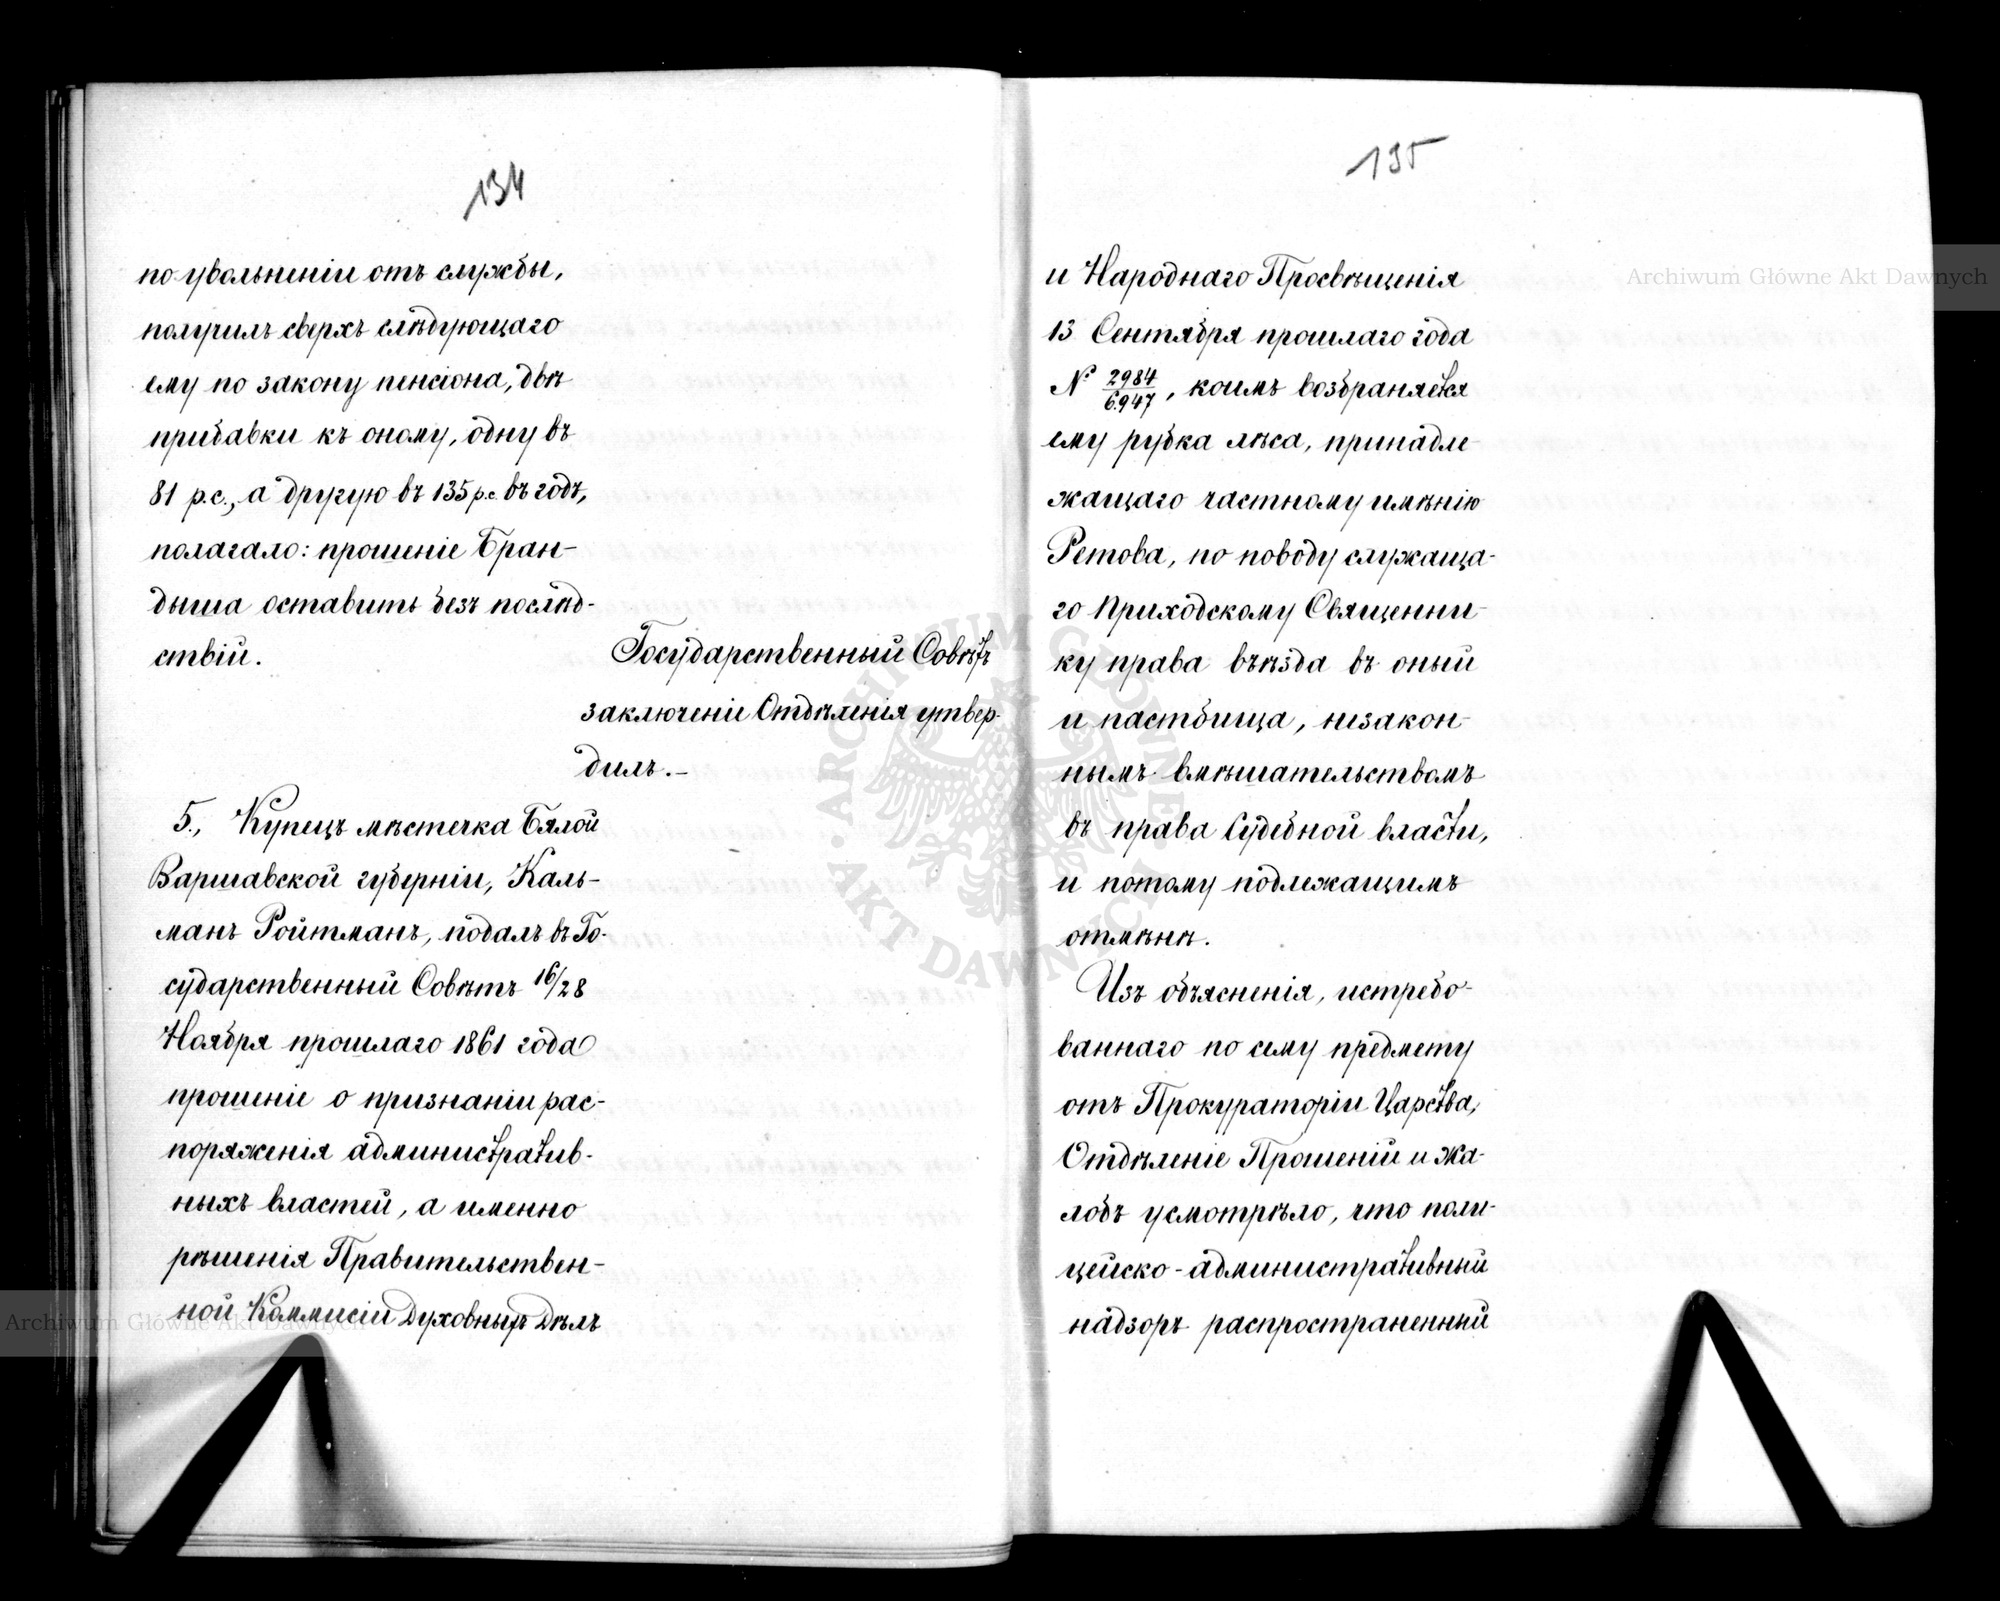 134
по увольненіи отъ службы,
получилъ сверхъ слѣдующаго
ему по закону пенсіона, двѣ
прибавки къ оному, одну въ
81 р.с., а другую въ 135 р.с. въ годъ,
полагало: прошеніе Бран-
дыша оставить безъ послѣд-
ствій.
Государственный Совѣтъ
заключеніе Отдѣленія утвер-
дилъ.-
5., Купецъ мѣстечка Бялой
Варшавской губерніи, Каль-
манъ Ройтманъ, подалъ въ Го-
сударственный Совѣтъ 16/28
Ноября прошлаго 1861 года
прошеніе о признаніи рас-
поряженія административ-
ныхъ властей, а именно
рѣшенія Правительствен-
ной Коммисіи Духовныхъ Дѣлъ
135
и Народнаго Просвѣщенія
13 Сентября прошлаго года
№ 2984/6947, коимъ возбраняется
ему рубка лѣса, принадле-
жащаго частному имѣнію
Ретова, по поводу служаща-
го Приходскому Священни-
ку права въѣзда въ оный
и пастбища, незакон-
нымъ вмѣшательствомъ
въ права Судебной власти,
и потому подлежащимъ
отмѣнѣ.
Изъ объясненія, истребо-
ваннаго по сему предмету
отъ Прокураторіи Царства,
Отдѣленіе Прошеній и Жа-
лобъ усмотрѣло, что поли-
цейско-административный
надзоръ распространенный
Archiwum Główne Akt Dawnych
Archiwum Główne Akt Dawnych
ARCHIWUM GŁÓWNE AKT DAWNYCH